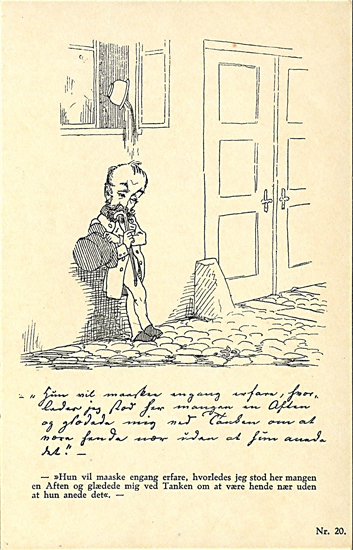 – „Hun vil maaskee engang erfare, hvor-
ledes jeg stod her mangen en Aften
og glædede mig ved Tanken om at
være hende nær uden at hun anede
det." –
— »Hun vil maaske engang erfare, hvorledes jeg stod her mangen
en Aften og glædede mig ved Tanken om at være hende nær uden
at hun anede det«. —
Nr. 20.